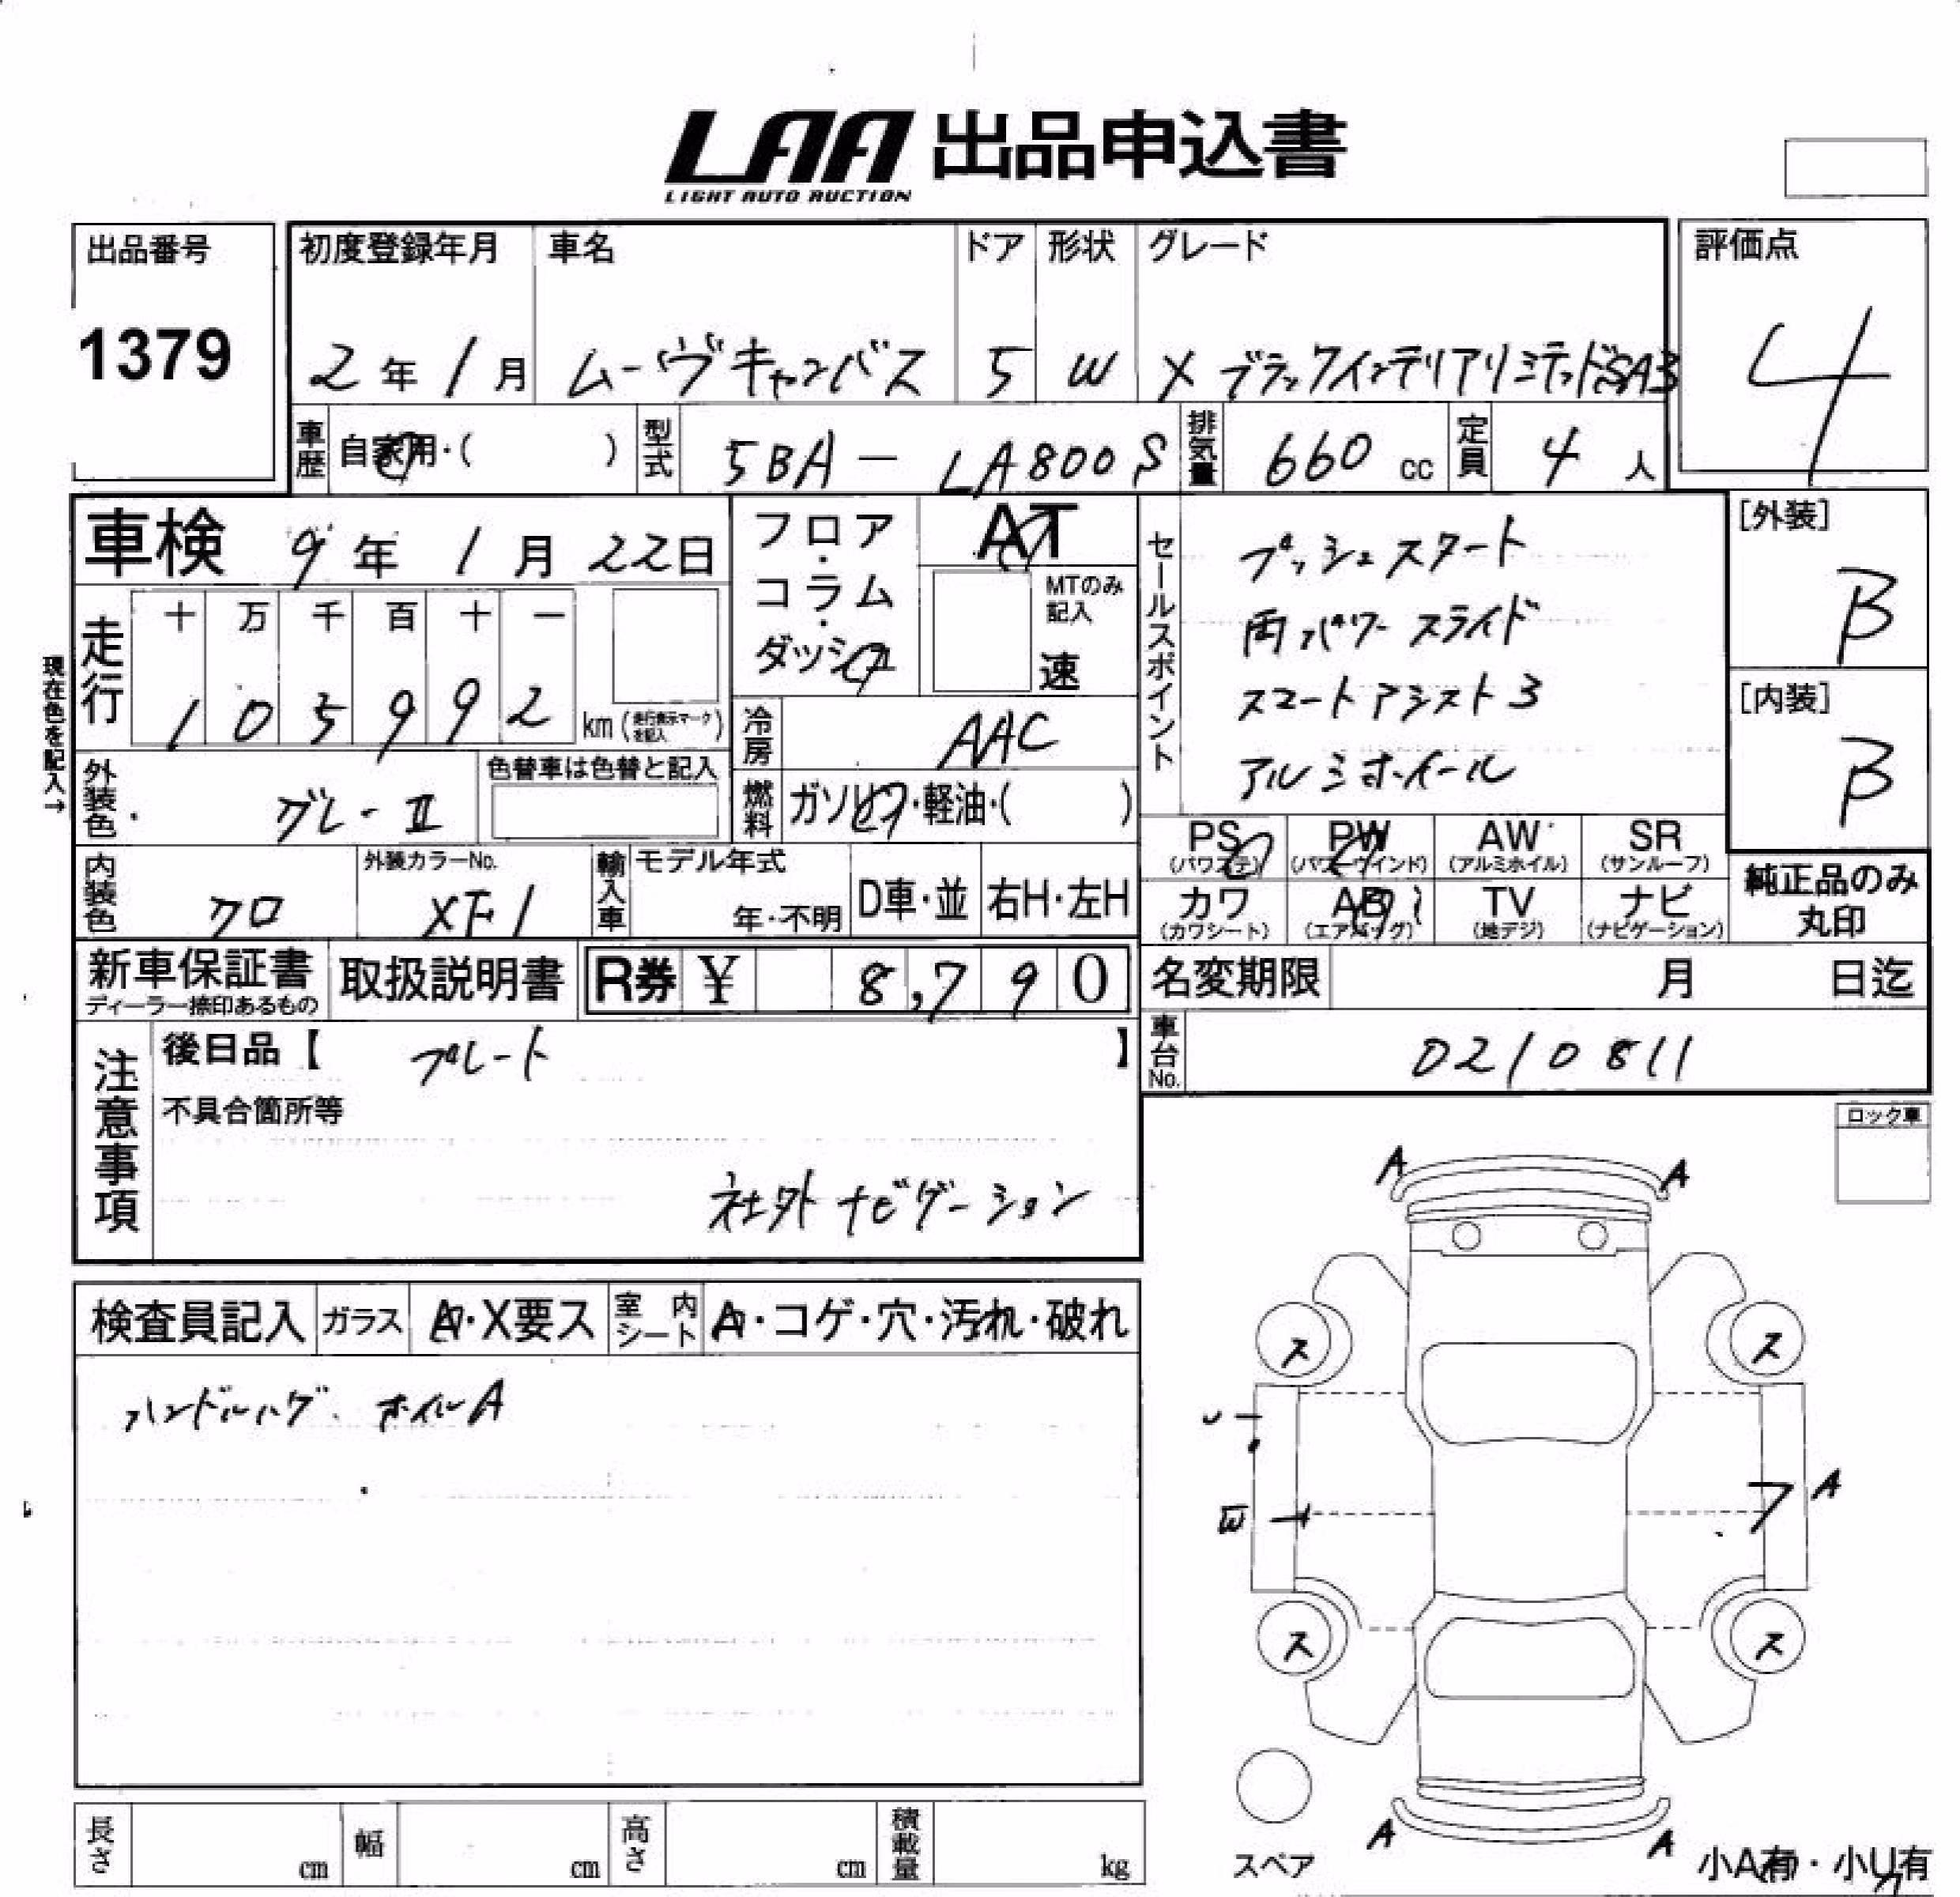 LAA 出品申込書
LIGHT AUTO AUCTION
出品番号
1379
初度登録年月 車名 ドア 形状 グレード
2年1月 ムーヴキャンバス 5 W Xブラックインテリアリミテッド SA3
評価点
4
車歴 自家用・( ) 型式 5BA-LA800S 排気量 660cc 定員 4人
車検 9年1月22日
フロア・コラム・ダッシュ
AT
MTのみ記入
速
セールスポイント
プッシュスタート
両パワースライド
スマートアシスト3
アルミホイール
[外装]
B
[内装]
B
現在色を記入→
走行 十 万 千 百 十 一
1 0 5 9 9 2 km(走行表示マークを記入)
冷房 AAC
外装色 グレーII 色替車は色替と記入
燃料 ガソリン・軽油・( )
PS AW SR
PW
(パワステ) (パワーウインド) (アルミホイル) (サンルーフ)
カワ AB TV ナビ
(カワシート) (エアバッグ) (地デジ) (ナビゲーション)
純正品のみ丸印
内装色 クロ 外装カラーNo. XF1
輸入車 モデル年式 年・不明 D車・並 右H・左H
新車保証書 取扱説明書 R券 ¥ 8,790
ディーラー捺印あるもの
名変期限 月 日迄
車台No. 0210811
注意事項
後日品【 プレート 】
不具合箇所等
社外ナビゲーション
ロック車
検査員記入 ガラス A・X要ス 室内シート A・コゲ・穴・汚れ・破れ
ハンドルハゲ. ホイルA
A A
ス ス
A
E
ス ス
A A
スペア
小A有・小U有
長さ cm 幅 cm 高さ cm 積載量 kg